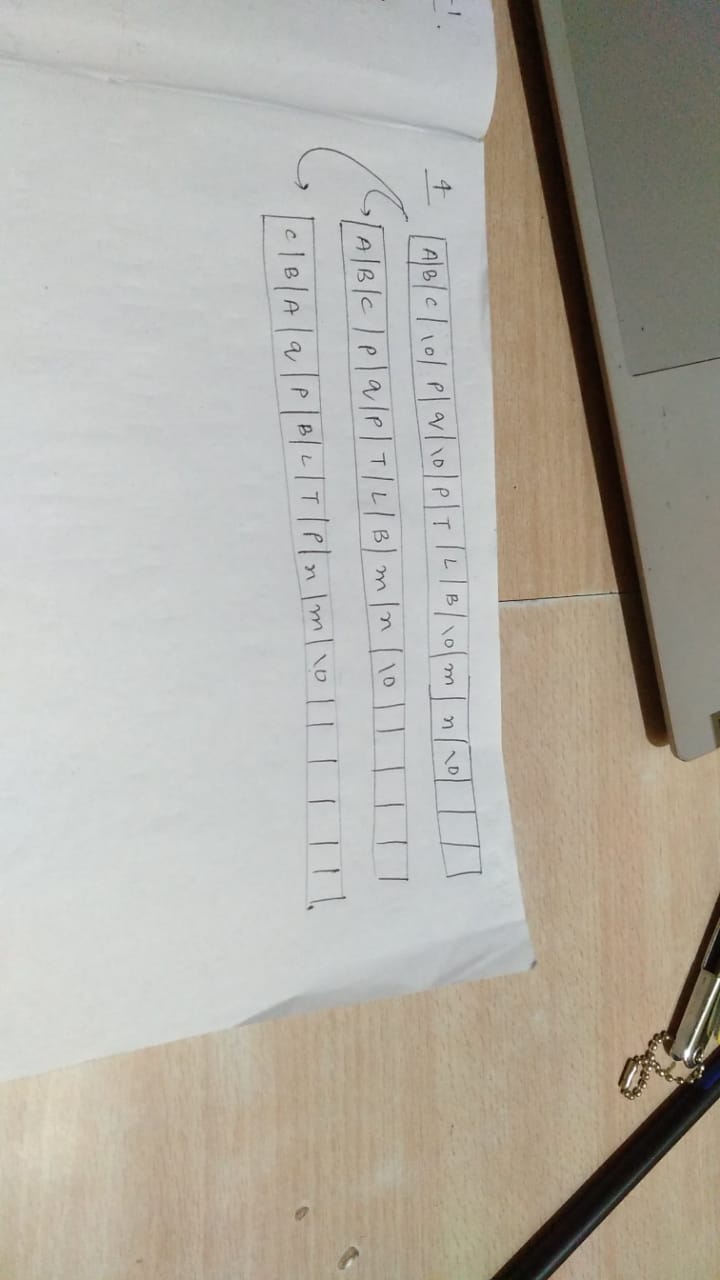 -!
4
A|B|C|\0|P|q|\0|P|T|L|B|\0|m|n|\0| | |
A|B|C|P|q|P|T|L|B|m|n|\0| | | | |
C|B|A|q|P|B|L|T|P|n|m|\0| | | | | |